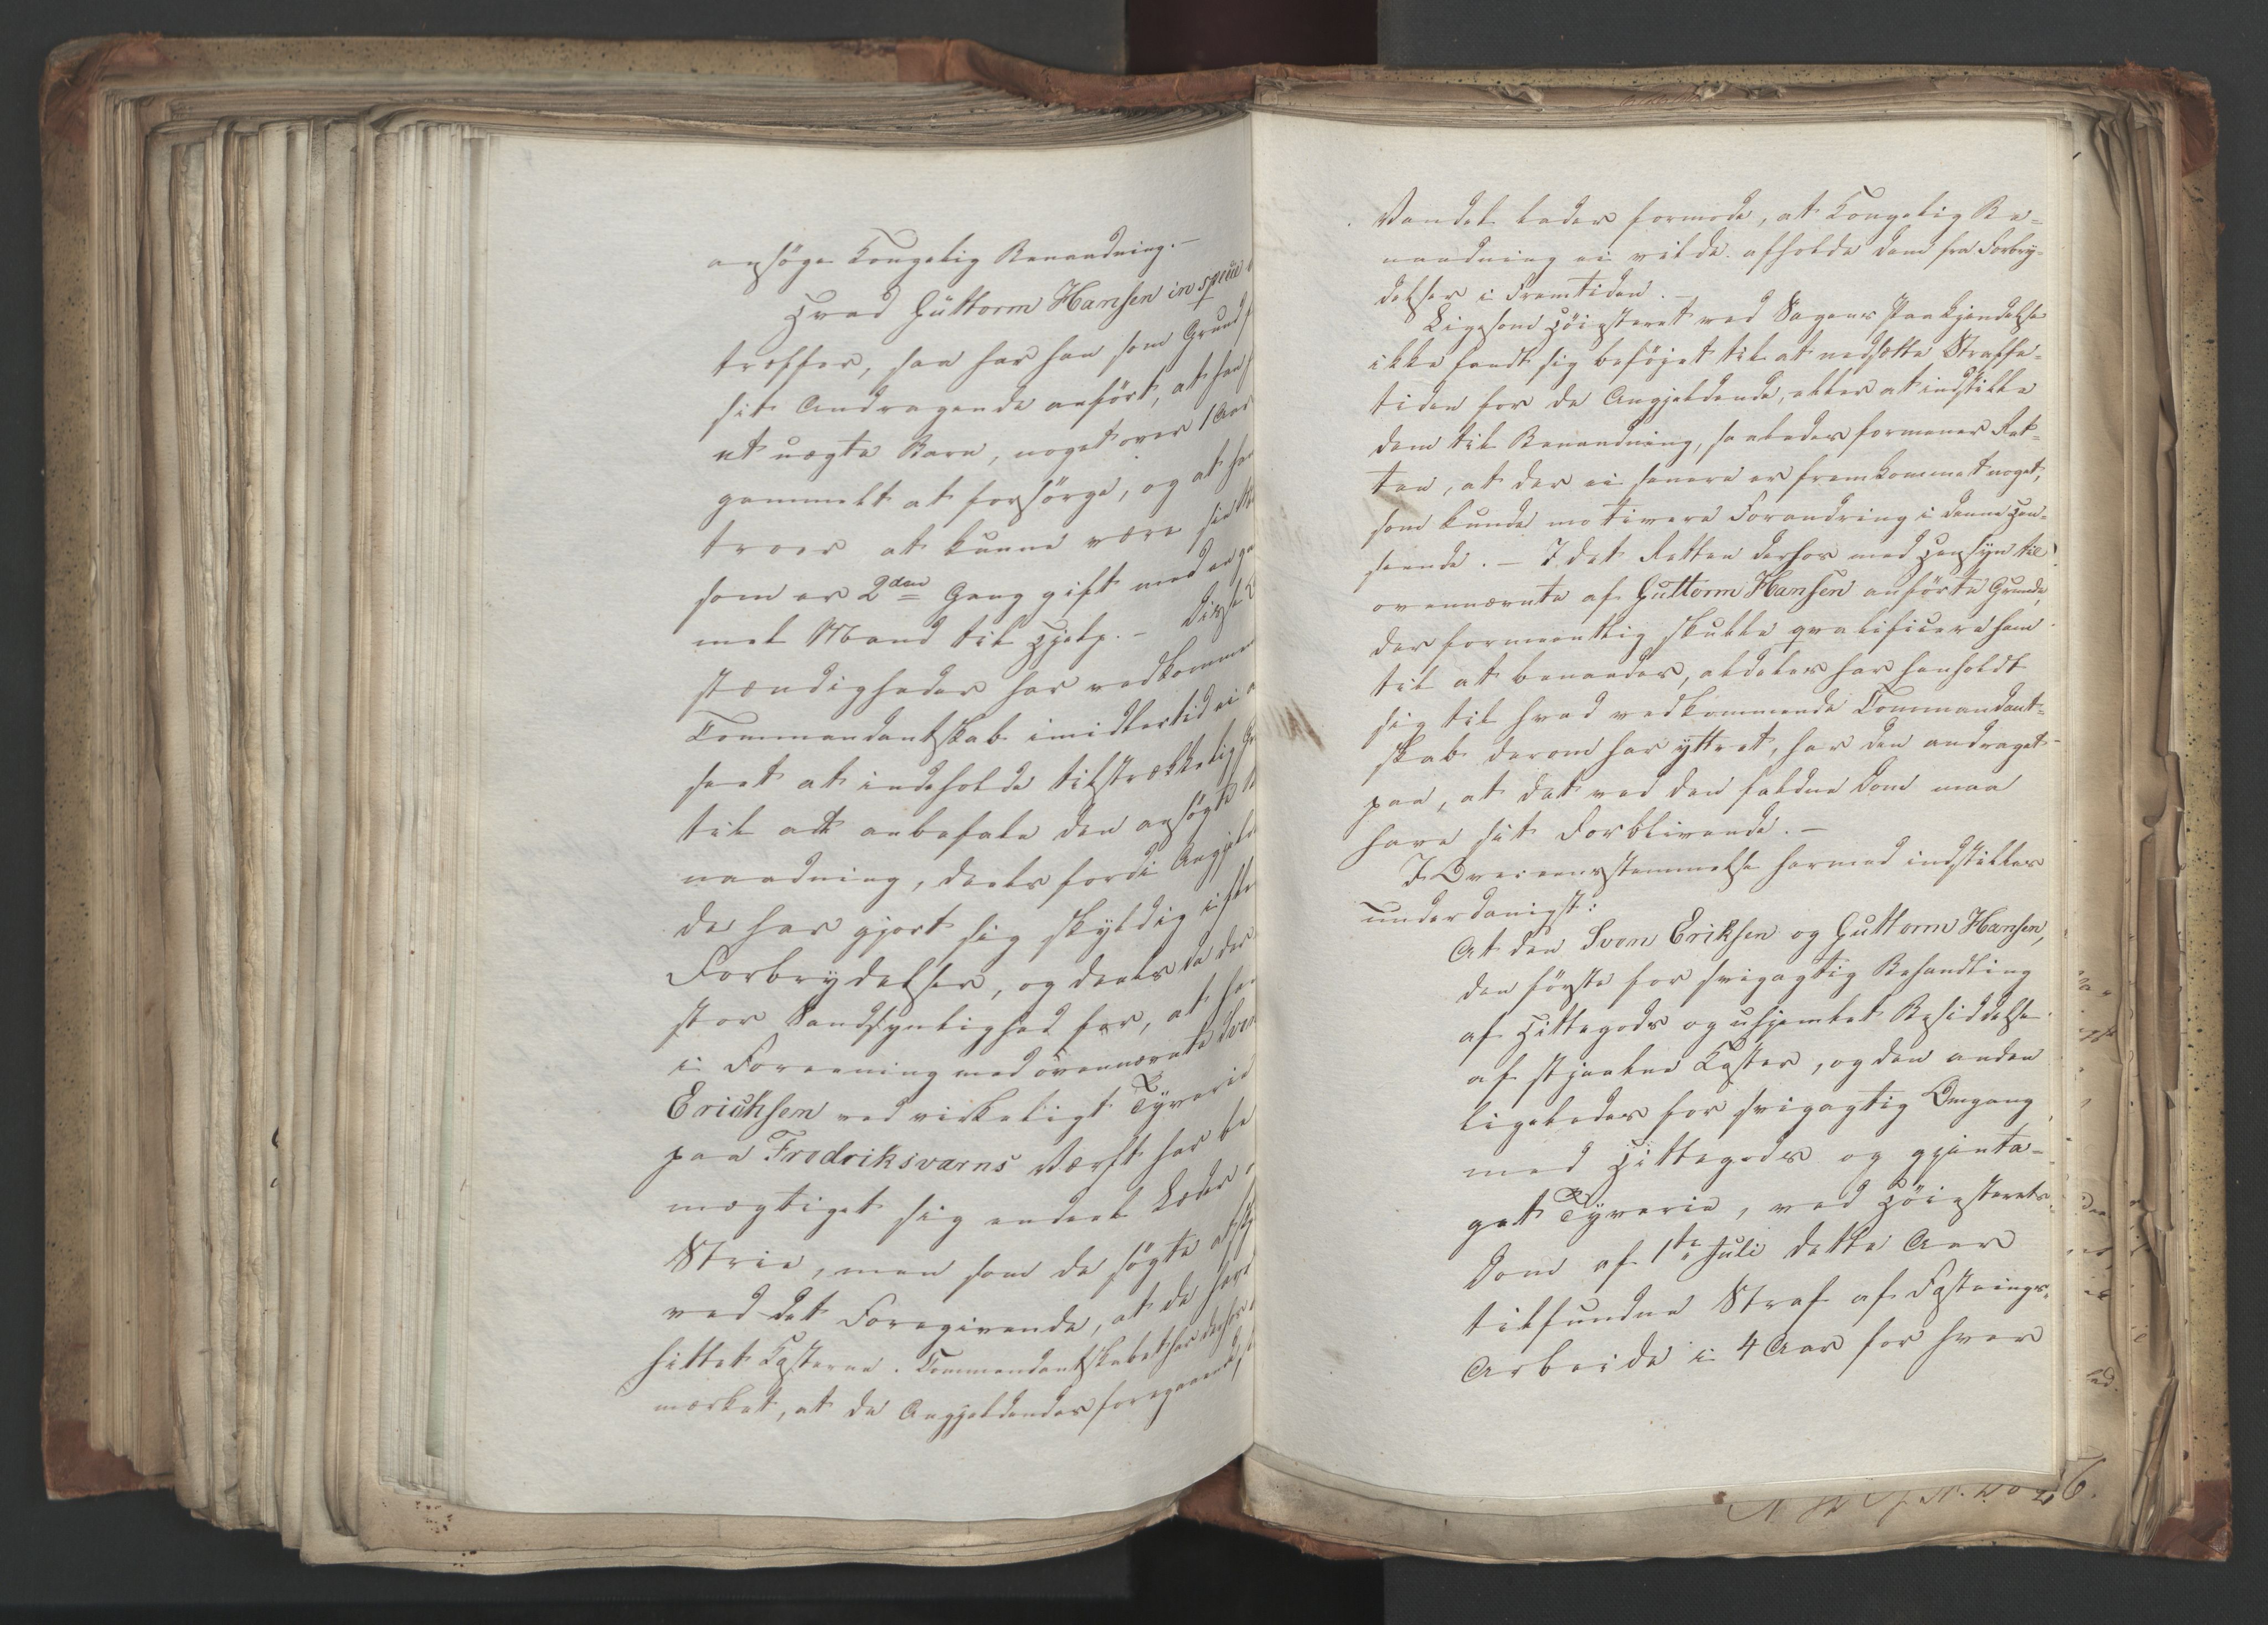 ansöge Kongelig Benaadning. –
Hvad Guttorm Hansen in specie
træffer, saa har han som Grund
sit Andragende anført, at han
et uægte Barn, noget over 1 Aar
gammelt at forsørge, og at han
troer at kunne være sin
som er 2den Gang gift med en
mel Mand til Hjelp. – Disse
stændigheder har vedkommen
Commandantskab imidlertid ei
seet at indeholde tilstrækkelig
til at anbefale den ansøgte
naadning, deels fordi Angjeld
de har gjort sig skyldig i
Forbrydelser, og deels da der
stor Sandsynlighed for, at han
i Forening med ovennævnte Sven
Erichsen ved virkeligt Tyverie
paa Fredriksværns Værft har be
mægtiget sig endeel Læder
Strie, men som de søgte
ved det Foregivende, at de have
hittet Kosterne. Commandantskabet har derhos
mærket, at de Angjeldendes foregaaende
Vandel lader formode, at Kongelig Be=
naadning ei vilde afholde dem fra Forbry=
delser i Fremtiden. –
Ligesom Höiesteret ved Sagens Paakjendelse
ikke fandt sig beføjet til at nedsætte Straffe=
tiden for de Angjeldende, eller at indstille
dem til Benaadning, saaledes formener Ret=
ten, at der ei senere er fremkommet noget,
som kunde motivere Forandring i denne Hen=
seende. – I det Retten derhos med Hensyn til
ovennævnte af Guttorm Hansen anførte Grunde,
der formeentlig skulle qvalificere ham
til at benaades, aldeles har henholdt
sig til hvad vedkommende Commandant=
skab derom har yttret, har den andraget
paa, at det ved den faldne Dom maa
have sit Forblivende. –
I Overeensstemmelse hermed indstilles
underdanigst:
At den Sven Eriksen og Guttorm Hansen,
den første for svigagtig Behandling
af Hittegods og uhjemlet Besiddelse
af stjaalne Koster, og den anden
ligeledes for svigagtig Omgang
med Hittegods og gjenta=
get Tyverie, ved Höiesterets
Dom af 1te Juli dette Aar
tilfundne Straf af Fæstnings=
Arbeide i 4 Aar for hver